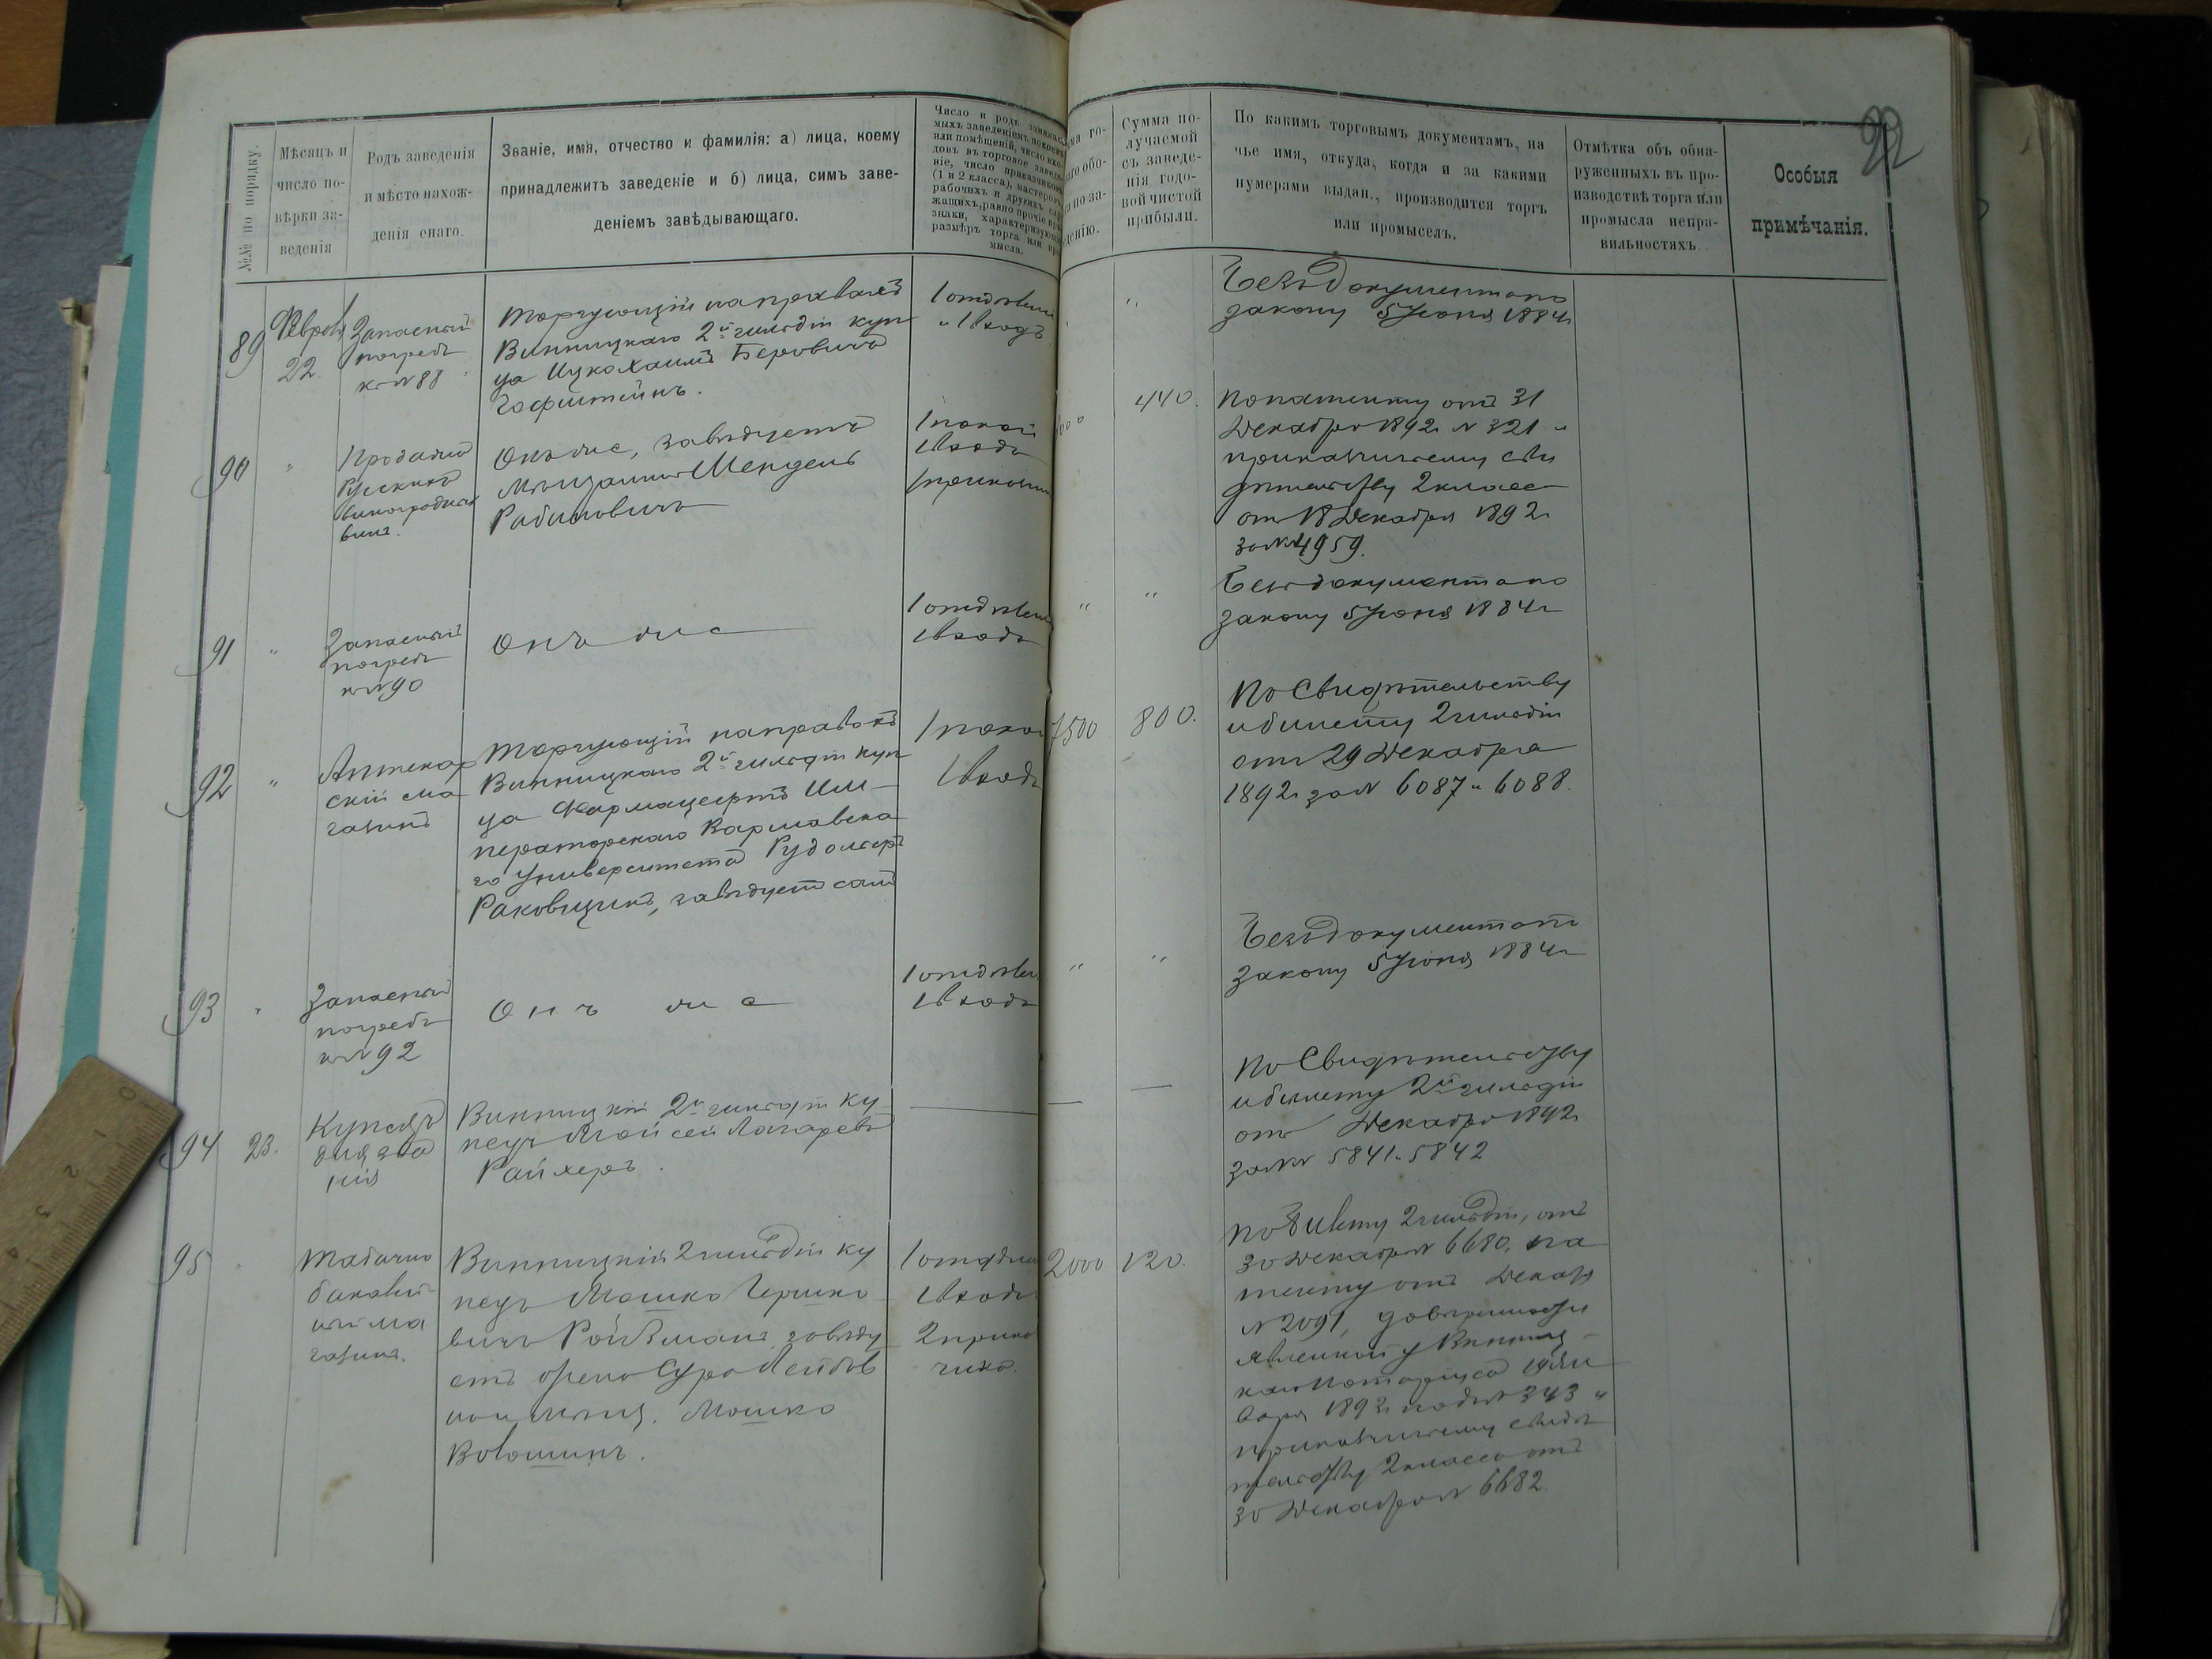 22
№№ по порядку.
Мѣсяцъ и
число по-
вѣрки за-
веденія
Родъ заведенія
и мѣсто нахож-
денія онаго.
Званіе, имя, отчество и фамилія: а) лица, коему
принадлежитъ заведеніе и б) лица, симъ заве-
деніемъ завѣдывающаго.
Число и родъ занимае
мыхъ заведеніемъ покоевъ
или помѣщеній, число вхо-
довъ въ торговое заведе-
ніе, число приказчиковъ
(1 и 2 класса), мастеровъ,
рабочихъ и другихъ слу
жащихъ, равно прочіе при
знаки, характеризующ
размѣръ торга или про
мысла.
ма го-
аго обо-
а по за-
денію.
Сумма по-
лучаемой
съ заведе-
нія годо-
вой чистой
прибыли.
По какимъ торговымъ документамъ, на
чье имя, откуда, когда и за какими
нумерами выдан., производится торгъ
или промыселъ.
Отмѣтка объ обна-
руженныхъ въ про-
изводствѣ торга или
промысла непра-
вильностяхъ
Особыя
примѣчанія.
89
Февраля
22.
Запасный
погребъ
къ № 88
Торгующій на правахъ
Винницкаго 2й гильдіи куп
ца Ицко Хаимъ Беровичъ
Гофштейнъ.
1 отдѣлен
и 1 входъ
"
Безъ документа по
закону 5 Іюня 1884 г
90
"
Продажа
Русскихъ
виноградных
винъ.
Онъ же, завѣдуетъ
Мѣщанинъ Мендель
Рабиновичъ
1 покой
1 входъ
1 приказчи
000
440.
По патенту отъ 31
Декабря 1892 г № 321 и
приказчичьему сви
дѣтельству 2 класса
отъ 18 Декабря 1892 г
за № 4959.
91
"
Запасный
погребъ
къ № 90
Онъ же
1 отдѣлен
1 входъ
"
"
Безъ документа по
закону 5 Іюня 1884 г
92
"
Аптекар
скій ма
газинъ
Торгующій на правахъ
Винницкаго 2й гильдіи куп
ца Фармацевтъ Им-
ператорскаго Варшавска
го Университета Рудольфъ
Раковщикъ, завѣдуетъ самъ
1 покой
1 входъ
7500
800.
По Свидѣтельству
и билету 2 гильдіи
отъ 29 Декабря
1892 г за № 6087 и 6088.
93
"
Запасный
погребъ
къ № 92
Онъ же
1 отдѣлен
1 входъ
"
"
Безъ документа по
закону 5 Іюня 1884 г
94
23.
Купецъ
для зва
нія
Винницкій 2й гильдіи ку
пецъ Мойсей Лазаревъ
Райхеръ.
По Свидѣтельству
и билету 2й гильдіи
отъ Декабря 1892
за №№ 5841 и 5842
95
Табачно
бакалей
ный ма
газинъ.
Винницкій 2 гильдіи ку
пецъ Мошко Гершко
вичъ завѣду
етъ жена Сура Лейбов
Мошко
Воловшинъ.
1 отдѣлен
1 входъ
2 приказ
чика.
2000
120.
По билету 2 гильдіи, отъ
30 Декабря № 6680, па
тенту отъ Декабря
№ 2091, довѣренности
явленной у Винниц-
каго Нотаріуса Ян
варя 1892 г подъ № 343 и
приказчичьему свидѣ
тельству 2 класса отъ
30 Декабря № 6682.